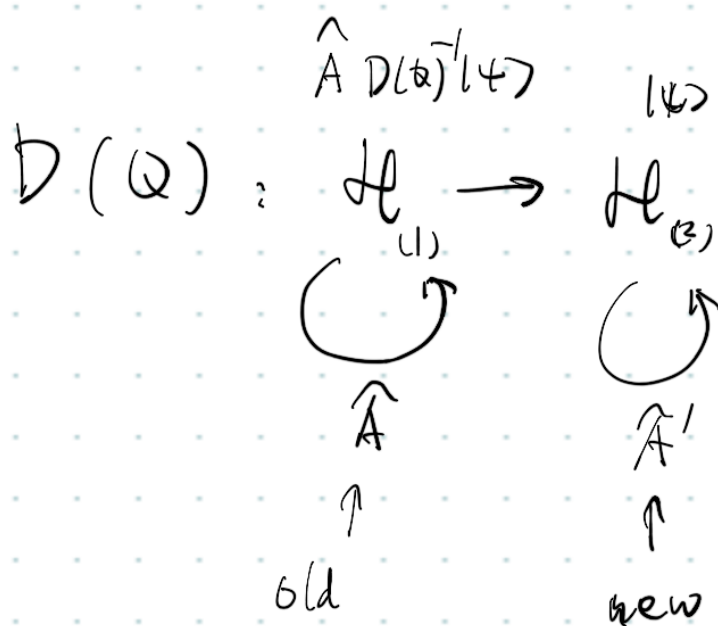 Â D(Q)⁻¹|ψ⟩ |ψ⟩
D(Q) : ℋ₍₁₎ → ℋ₍₂₎
Â Â′
↑ ↑
old new